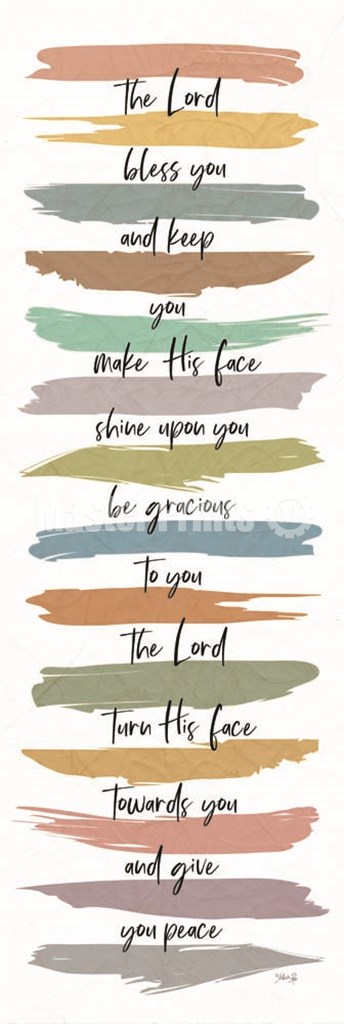 The Lord
bless you
and keep
you
make His face
shine upon you
be gracious
To you
The Lord
Turn His face
Towards you
and give
you peace